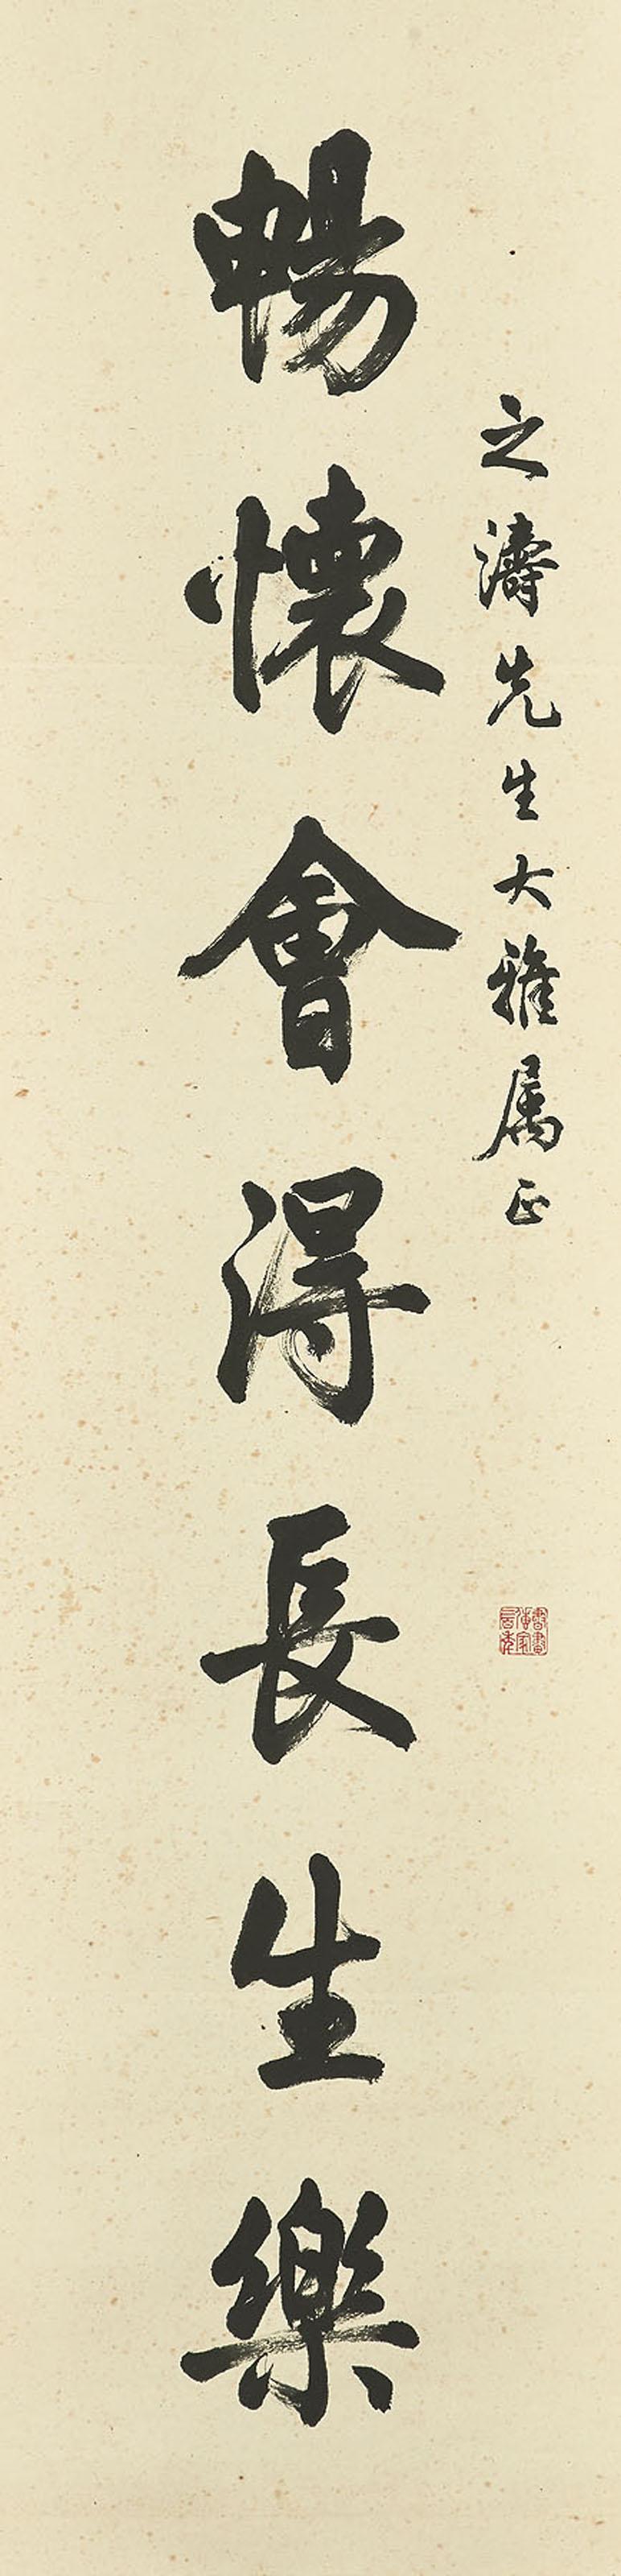 之濤先生大雅属正
暢懷會得長生樂